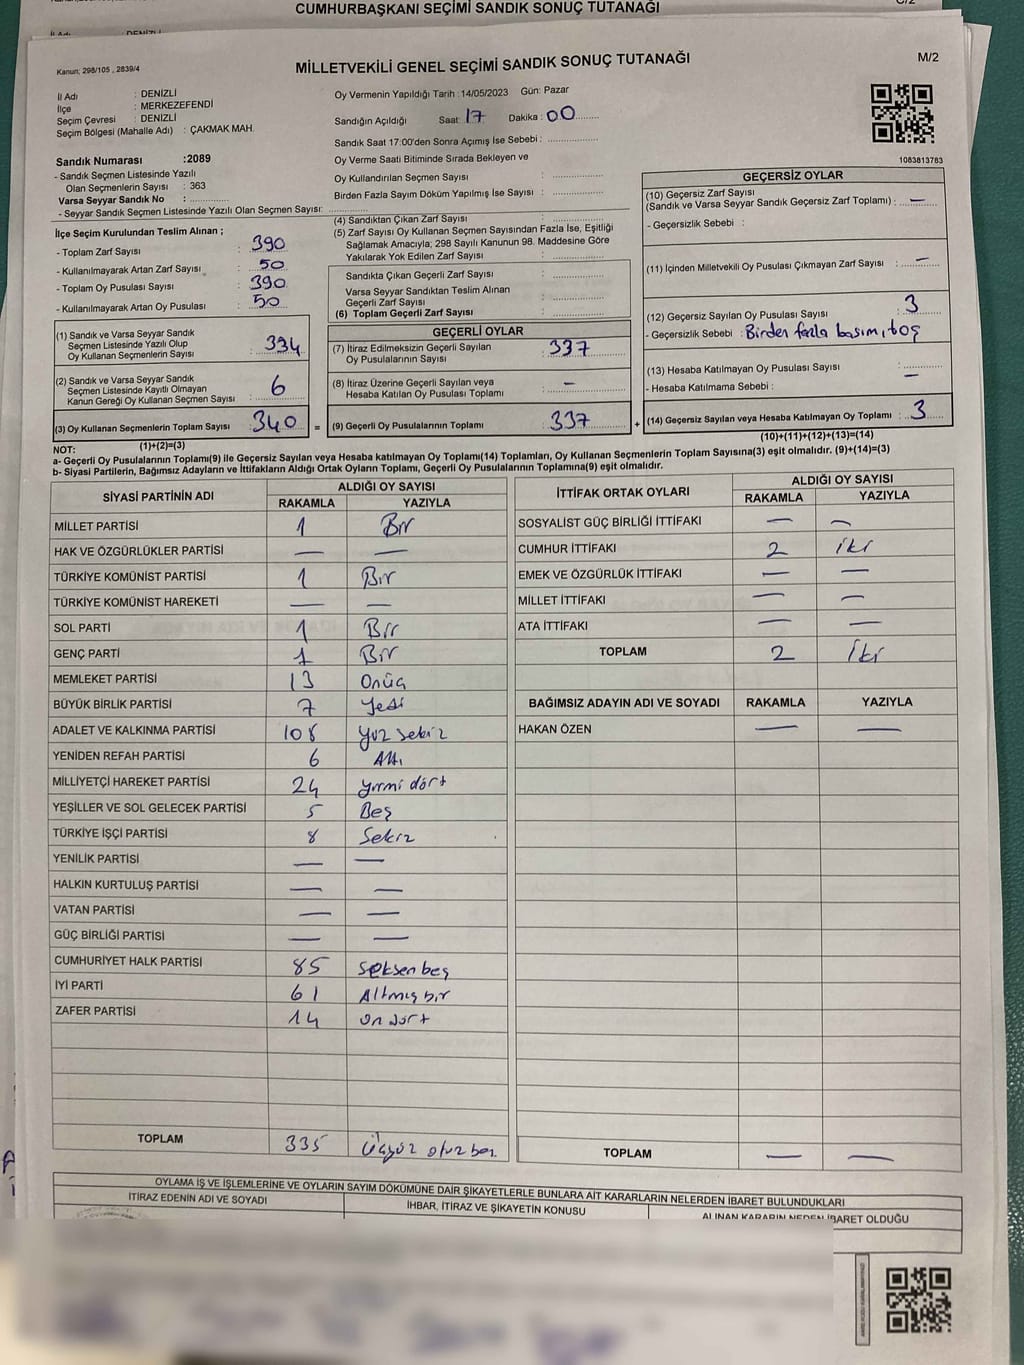 CUMHURBAŞKANI SEÇİMİ SANDIK SONUÇ TUTANAĞI
C/2
İl Adı : DENİZLİ
Kanun; 298/105 , 2839/4
MİLLETVEKİLİ GENEL SEÇİMİ SANDIK SONUÇ TUTANAĞI
M/2
İl Adı : DENİZLİ
İlçe : MERKEZEFENDİ
Seçim Çevresi : DENİZLİ
Seçim Bölgesi (Mahalle Adı) : ÇAKMAK MAH.
Sandık Numarası :2089
- Sandık Seçmen Listesinde Yazılı
Olan Seçmenlerin Sayısı : 363
Varsa Seyyar Sandık No : ..............
- Seyyar Sandık Seçmen Listesinde Yazılı Olan Seçmen Sayısı: ..............
Oy Vermenin Yapıldığı Tarih :14/05/2023 Gün: Pazar
Sandığın Açıldığı Saat: 17 Dakika : 00
Sandık Saat 17:00'den Sonra Açımış İse Sebebi : ..............
Oy Verme Saati Bitiminde Sırada Bekleyen ve
Oy Kullandırılan Seçmen Sayısı : ..............
Birden Fazla Sayım Döküm Yapılmış İse Sayısı : ..............
1083813783
İlçe Seçim Kurulundan Teslim Alınan ;
- Toplam Zarf Sayısı : 390
- Kullanılmayarak Artan Zarf Sayısı : 50
- Toplam Oy Pusulası Sayısı : 390
- Kullanılmayarak Artan Oy Pusulası : 50
(1) Sandık ve Varsa Seyyar Sandık
Seçmen Listesinde Yazılı Olup
Oy Kullanan Seçmenlerin Sayısı : 334
(2) Sandık ve Varsa Seyyar Sandık
Seçmen Listesinde Kayıtlı Olmayan
Kanun Gereği Oy Kullanan Seçmen Sayısı : 6
(3) Oy Kullanan Seçmenlerin Toplam Sayısı : 340
(1)+(2)=(3)
(4) Sandıktan Çıkan Zarf Sayısı : ..............
(5) Zarf Sayısı Oy Kullanan Seçmen Sayısından Fazla İse, Eşitliği
Sağlamak Amacıyla; 298 Sayılı Kanunun 98. Maddesine Göre
Yakılarak Yok Edilen Zarf Sayısı : ..............
Sandıkta Çıkan Geçerli Zarf Sayısı : ..............
Varsa Seyyar Sandıktan Teslim Alınan
Geçerli Zarf Sayısı : ..............
(6) Toplam Geçerli Zarf Sayısı : ..............
=
GEÇERLİ OYLAR
(7) İtiraz Edilmeksizin Geçerli Sayılan
Oy Pusulalarının Sayısı : 337
(8) İtiraz Üzerine Geçerli Sayılan veya
Hesaba Katılan Oy Pusulası Toplamı : —
(9) Geçerli Oy Pusulalarının Toplamı : 337
+
GEÇERSİZ OYLAR
(10) Geçersiz Zarf Sayısı
(Sandık ve Varsa Seyyar Sandık Geçersiz Zarf Toplamı) : —
- Geçersizlik Sebebi :
(11) İçinden Milletvekili Oy Pusulası Çıkmayan Zarf Sayısı : —
(12) Geçersiz Sayılan Oy Pusulası Sayısı : 3
- Geçersizlik Sebebi : Birden fazla basım, boş
(13) Hesaba Katılmayan Oy Pusulası Sayısı : —
- Hesaba Katılmama Sebebi :
(14) Geçersiz Sayılan veya Hesaba Katılmayan Oy Toplamı : 3
(10)+(11)+(12)+(13)=(14)
NOT:
a- Geçerli Oy Pusulalarının Toplamı(9) ile Geçersiz Sayılan veya Hesaba katılmayan Oy Toplamı(14) Toplamları, Oy Kullanan Seçmenlerin Toplam Sayısına(3) eşit olmalıdır. (9)+(14)=(3)
b- Siyasi Partilerin, Bağımsız Adayların ve İttifakların Aldığı Ortak Oyların Toplamı, Geçerli Oy Pusulalarının Toplamına(9) eşit olmalıdır.
SİYASİ PARTİNİN ADI ALDIĞI OY SAYISI
RAKAMLA YAZIYLA
MİLLET PARTİSİ 1 Bir
HAK VE ÖZGÜRLÜKLER PARTİSİ — —
TÜRKİYE KOMÜNİST PARTİSİ 1 Bir
TÜRKİYE KOMÜNİST HAREKETİ — —
SOL PARTİ 1 Bir
GENÇ PARTİ 1 Bir
MEMLEKET PARTİSİ 13 Onüç
BÜYÜK BİRLİK PARTİSİ 7 Yedi
ADALET VE KALKINMA PARTİSİ 108 yüz sekiz
YENİDEN REFAH PARTİSİ 6 Altı
MİLLİYETÇİ HAREKET PARTİSİ 24 yirmi dört
YEŞİLLER VE SOL GELECEK PARTİSİ 5 Beş
TÜRKİYE İŞÇİ PARTİSİ 8 Sekiz
YENİLİK PARTİSİ — —
HALKIN KURTULUŞ PARTİSİ — —
VATAN PARTİSİ — —
GÜÇ BİRLİĞİ PARTİSİ — —
CUMHURİYET HALK PARTİSİ 85 seksen beş
İYİ PARTİ 61 Altmış bir
ZAFER PARTİSİ 14 on dört
TOPLAM 335 Üçyüz otuz beş
İTTİFAK ORTAK OYLARI ALDIĞI OY SAYISI
RAKAMLA YAZIYLA
SOSYALİST GÜÇ BİRLİĞİ İTTİFAKI — —
CUMHUR İTTİFAKI 2 iki
EMEK VE ÖZGÜRLÜK İTTİFAKI — —
MİLLET İTTİFAKI — —
ATA İTTİFAKI — —
TOPLAM 2 İki
BAĞIMSIZ ADAYIN ADI VE SOYADI RAKAMLA YAZIYLA
HAKAN ÖZEN — —
TOPLAM — —
OYLAMA İŞ VE İŞLEMLERİNE VE OYLARIN SAYIM DÖKÜMÜNE DAİR ŞİKAYETLERLE BUNLARA AİT KARARLARIN NELERDEN İBARET BULUNDUKLARI
İTİRAZ EDENİN ADI VE SOYADI İHBAR, İTİRAZ VE ŞİKAYETİN KONUSU ALINAN KARARIN NEDEN İBARET OLDUĞU